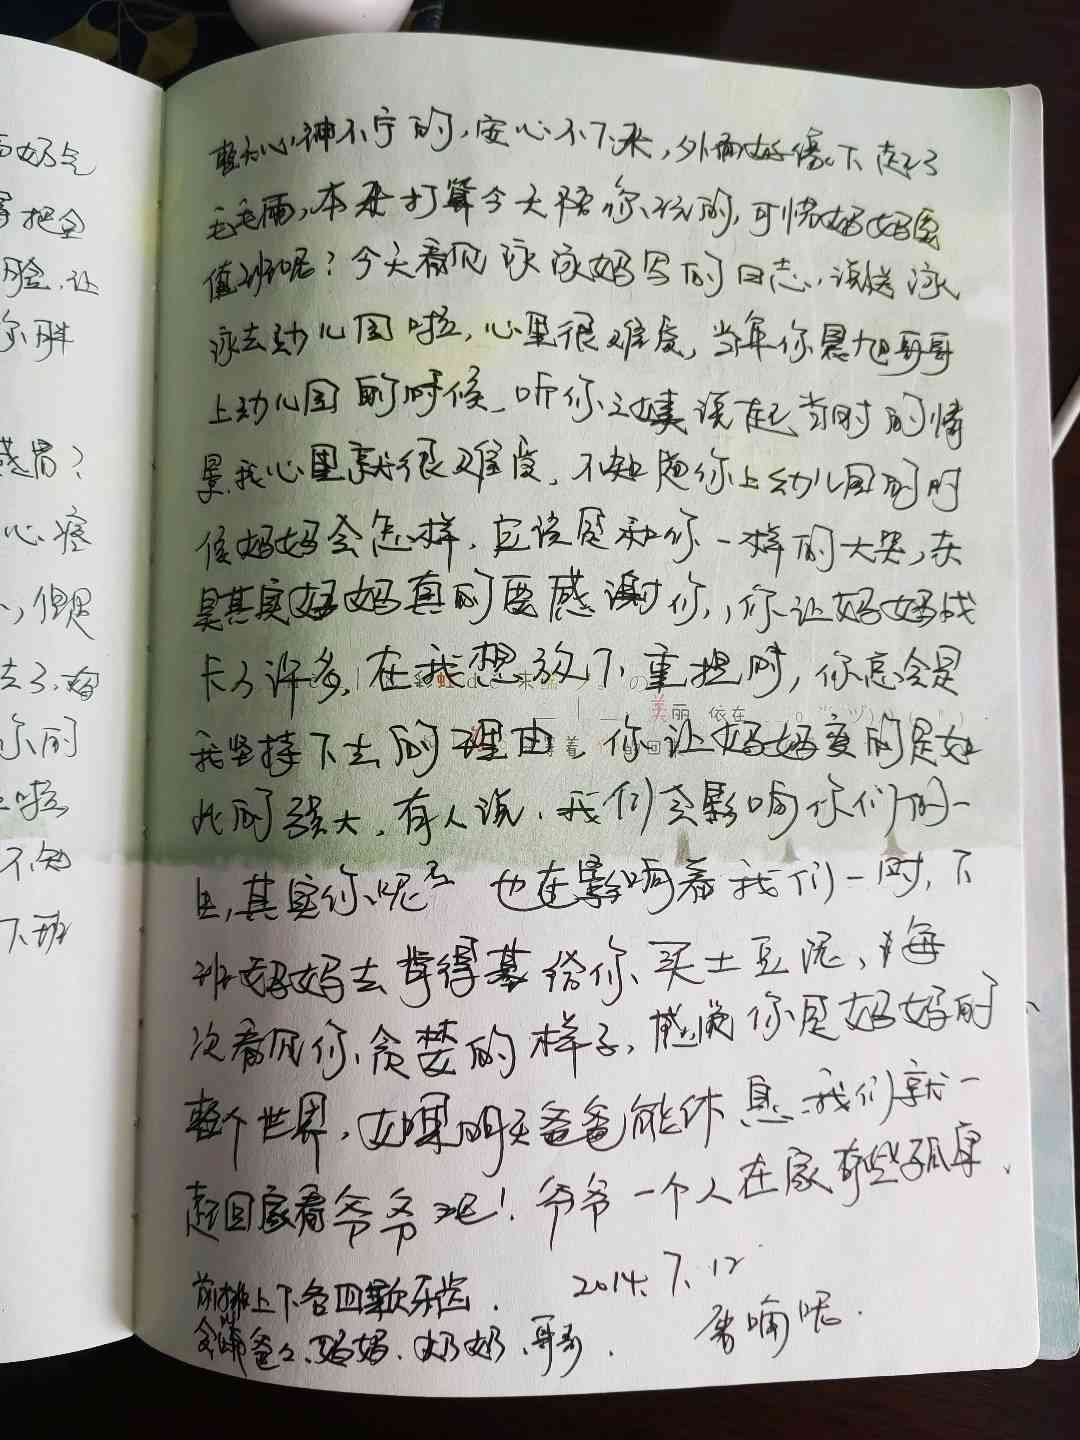 面好气
把全
脸，让
你胖
感冒？
心疼
，但是
去了，妈
你的
上啦
不知
下班
整天心神不宁的，安心不下来，外面好像下起了
毛毛雨，本来打算今天陪你玩的，可惜妈妈要
值班呢？今天看见泳泳妈写的日志，说送泳
泳去幼儿园啦，心里很难度，当年你晨旭哥哥
上幼儿园的时候，听你三姨说起当时的情
景，我心里就很难度，不知道你上幼儿园的时
候妈妈会怎样，应该是和你一样的大哭，
其实妈妈真的要感谢你，，你让妈妈成
长了许多，在我想放下重担时，你总会是
我坚持下去的理由，你让妈妈变的是如
此的强大，有人说，我们会影响你们的一
生，其实你呢？也在影响着我们一时，下
班妈妈去肯得基给你买土豆泥，每
次看见你贪婪的样子，感觉你是妈妈的
整个世界，如果明天爸爸能休息，我们就一
起回家看爷爷吧！爷爷一个人在家有些孤单、
前排上下各四颗牙齿． 2014.7.12
会喊爸爸、妈妈、奶奶、哥哥． 喃呢．
彩虹de 来临 の
美丽 依在
着 的回